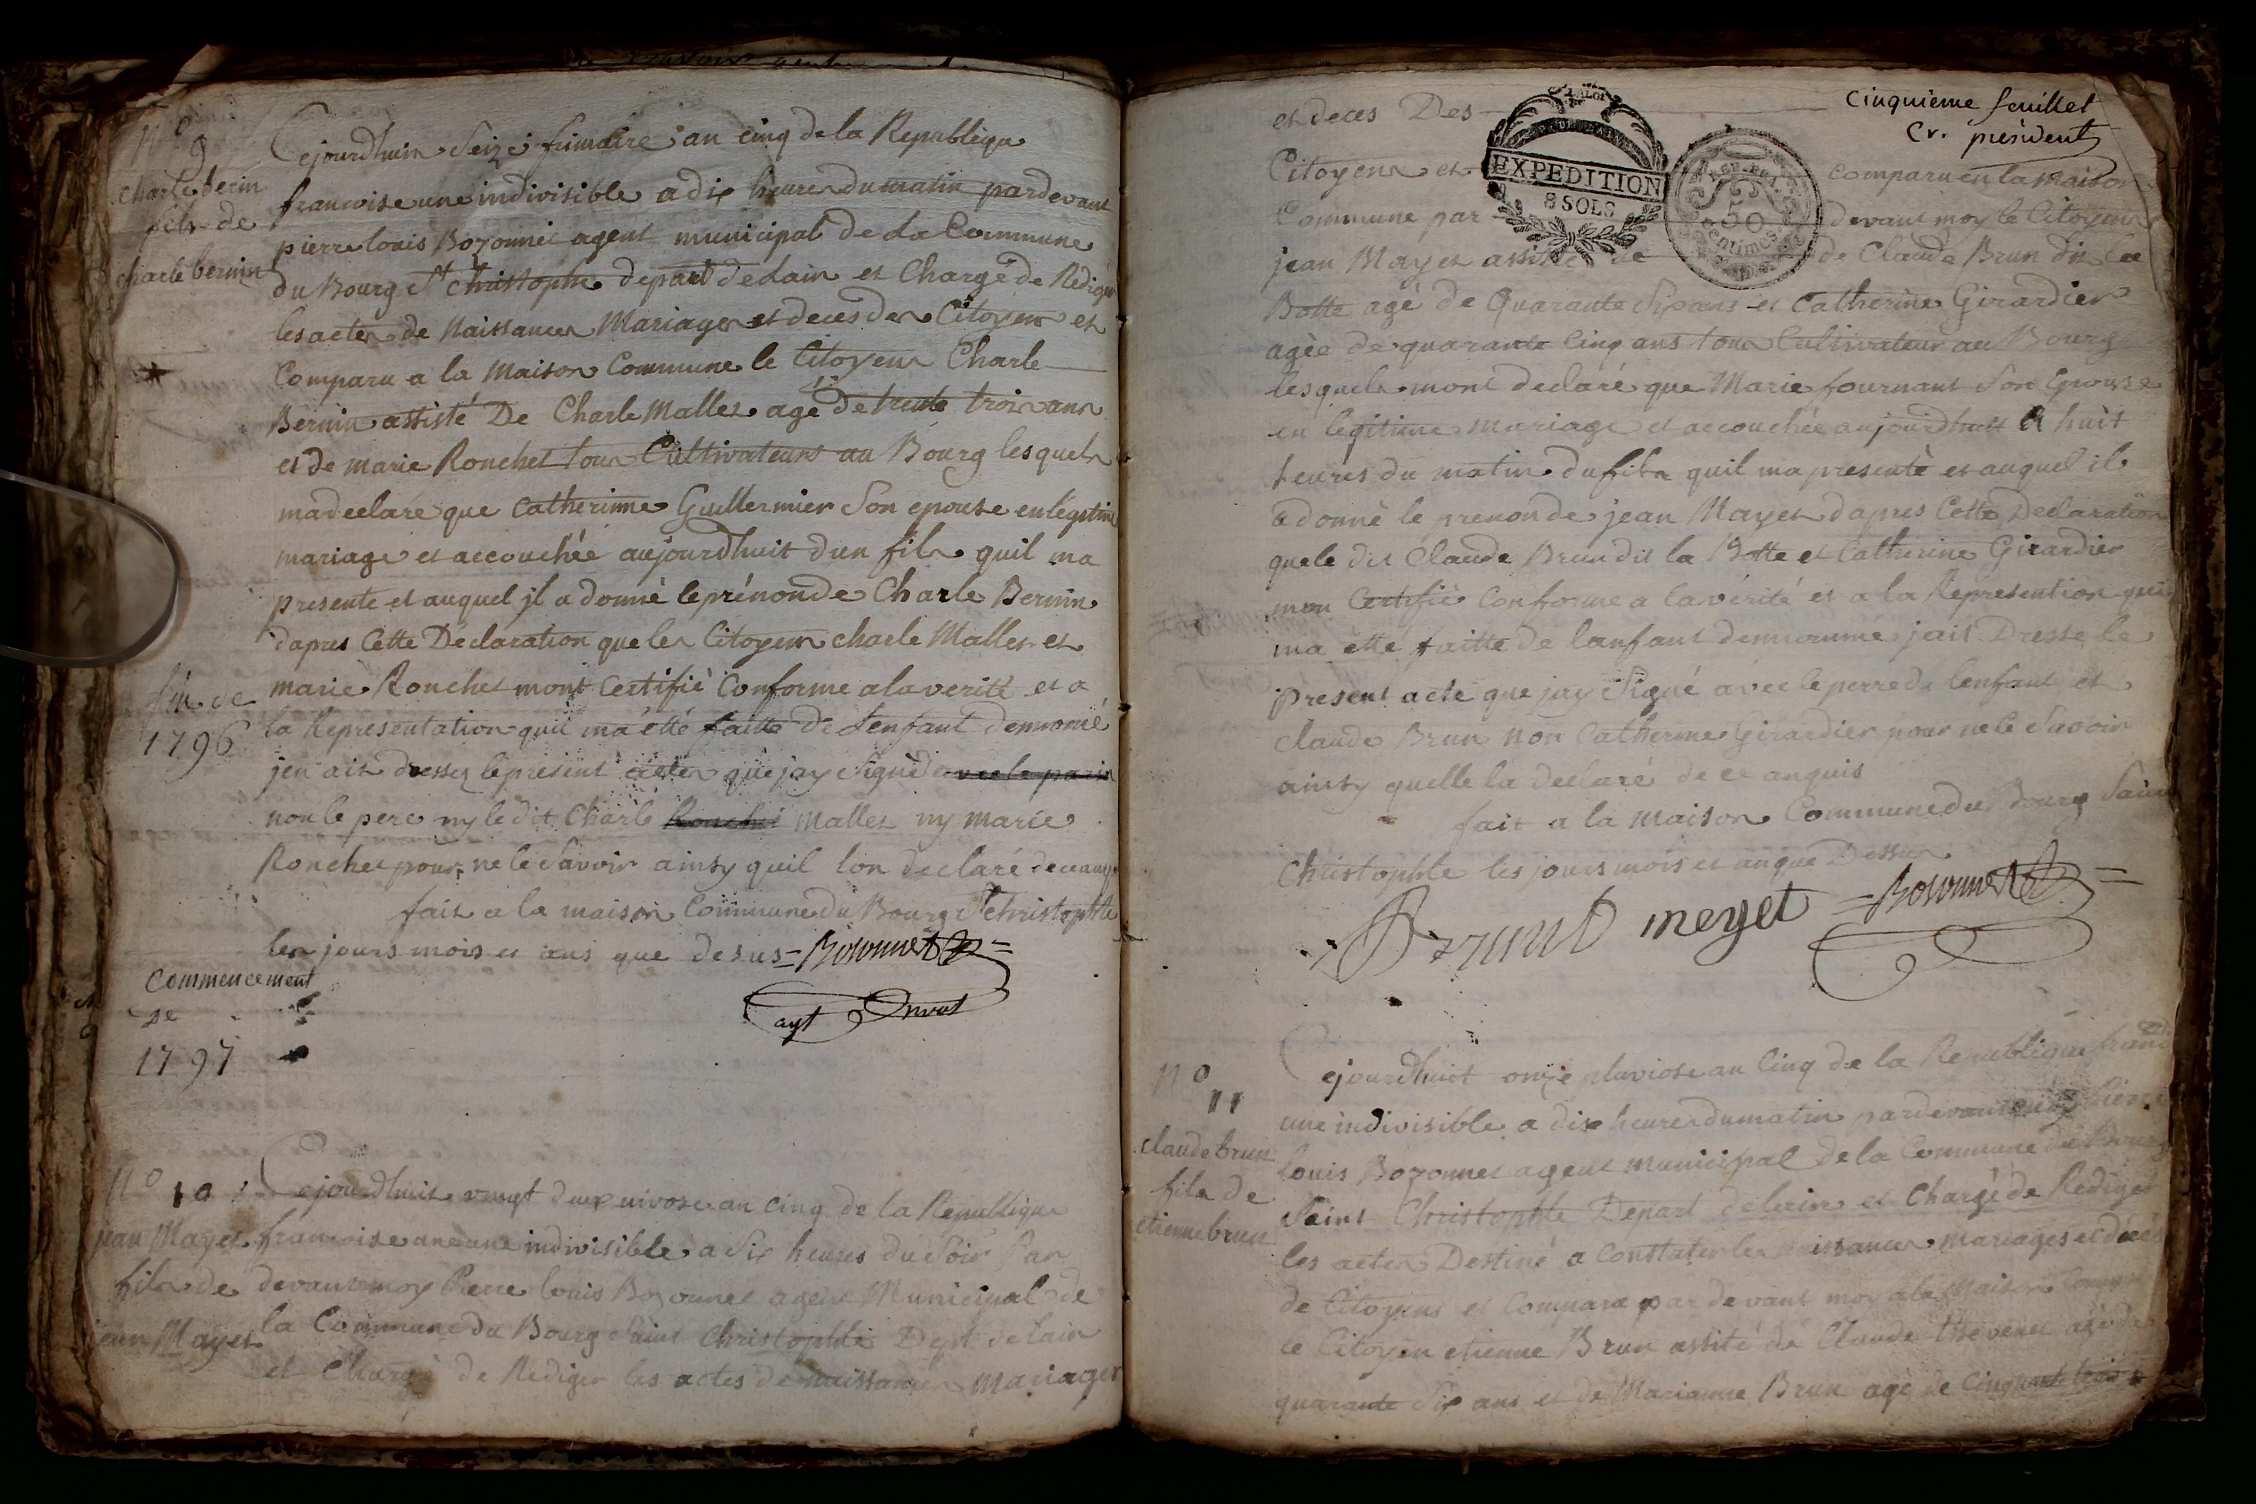 N° 9
charle bernin
fils de
charle bernin
Cejourdhuin Seize frimaire an cinq de la Republique
francoise une indivisible a dix heures du matin pardevant
pierre louis Bozonnet agent municipal de La Commune
du Bourg St christophe depart de Lain et Chargé de Rediger
les actes de Naissances Mariages et deces des Citoyens et
Comparu a la Maison Commune le Citoyen Charle
Bernin assisté De Charle Mallet agé de trente trois ans
et de marie Ronchet tous Cultivateurs au Bourg lesquels
ma declaré que Catherinne Guillermier Son epouse en légitime
mariage et accouchée aujourdhuit dun fils quil ma
presente et auquel jl a donné le prénon de Charle Bernin
dapres Cette Déclaration que les Citoyens charle Mallet et
marie Ronchet mont Certifié Conforme a la verité et a
la Representation qui ma été faitte de Lenfant denomé
jen ait dressez le présent actes que jay Signé avec le parin
non le pere ny le dit Charle Ronchet Mallet ny marie
Ronchet pour ne le Savoir ainsy quil lon declaré de ce
fait a la maison Commune du Bourg St christophle
les jours mois et ans que desus = Bozonnet =
agt
fin de
1796
Commencement
de
1797
N° 10
jean Mayet
fils de
jean Mayet
Cejourdhuit vingt deux nivose an cinq de la Republique
francoise une indivisible a Six heures du Soir Par
devant moy Pierre louis Bozonnet agent Municipal de
la Commune du Bourg Saint Christophle Dept de lain
et Chargé de Rediger les actes de naissances mariages
Cinquieme feuillet
Cr. président
et deces Des
Citoyens et comparu en la maison
Commune par devant moy le Citoyen
jean Mayet assisté de de Claude Brun dit la
Botte agé de Quarante Six ans et Catherine Girardier
agée de quarante Cinq ans tous Cultivateur au Bourg
lesquels mont declaré que Marie fournant Son Epouse
en légitime mariage et accouchée aujourdhuit a huit
heures du matin du fils quil ma presenté et auquel il
a donné le prenon de jean Mayet dapres Cette Declaration
que le dit Claude Brun dit la Botte et Catherine Girardier
mon Certifié Conforme a la vérité et a la Representation qui
ma été faitte de lanfant denommé jait Dresse le
present acte que jay Signé avec le perre de lenfant et
Claude Brun non Catherine Girardier pour ne le Savoir
ainsy quelle la declaré de ce anquis
fait a la maison Commune du Bourg Saint
Christophle les jours mois et an que Dessus
Brunt meyet = Bozonnet =
EXPEDITION
8 SOLS
REP. FRA.
50
centimes
N° 11
claude brun
fils de
etienne brun
Cejourdhuit onze pluviose an Cinq de la Republique
une indivisible a dix heures du matin pardevant moy Pierre
louis Bozonnet agent municipal de la Commune du Bourg
Saint Christophle Depart de lain et Chargé de Rediger
les actes Destiné a Constater les naissances mariages et décès
de Citoyens et Comparu par devant moy a la Maison Commune
le Citoyen etienne Brun assité de Claude thevenet agé de
quarante Six ans et de Marianne Brun agé de Cinquante trois